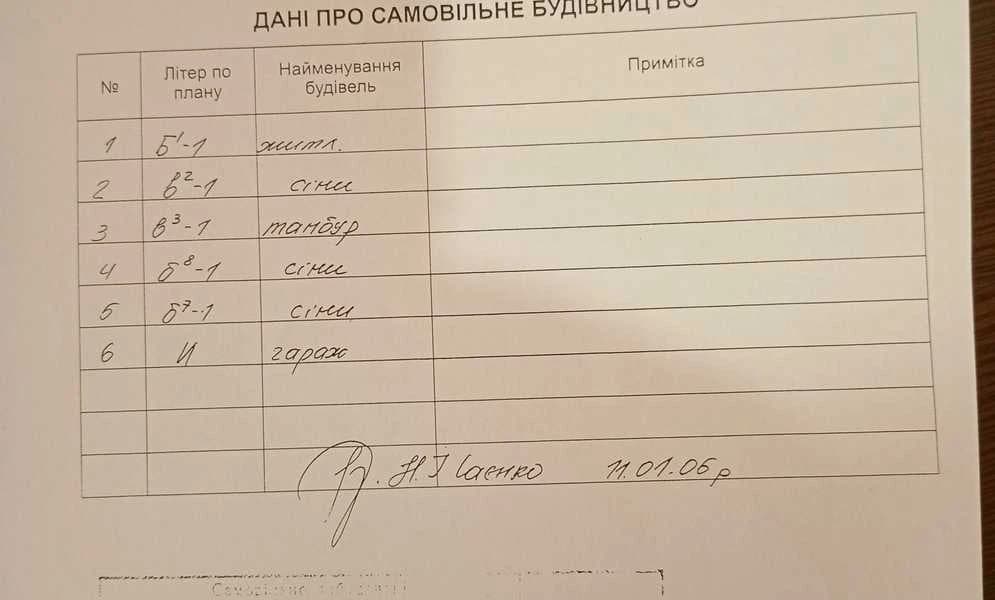 ДАНІ ПРО САМОВІЛЬНЕ БУДІВНИЦТВО
№ Літер по плану Найменування будівель Примітка
1 Б¹-1 житл.
2 в²-1 сіни
3 в³-1 тамбур
4 б⁸-1 сіни
5 б⁷-1 сіни
6 И гараж
11.01.06 р